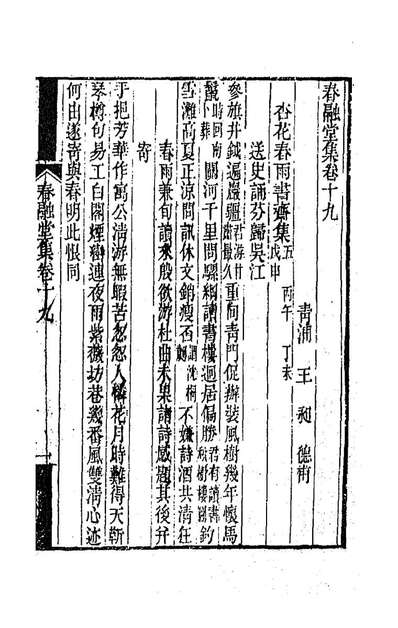 春融堂集卷十九
青浦 王昶 德甫
杏花春雨書齋集五 丙午 丁未 戊申
送史誦芬歸吳江
參旗井鉞遍巖疆君游甘肅最久重向靑門促辦裝風樹幾年懷馬
鬣時回南卜葬關河千里問驪綱讀書樓迥居偏勝君有讀書秋樹樓圖釣
雪灘高夏正涼問訊休文銷瘦否謂沈桐不嫌詩酒共淸狂
春雨兼旬讀來殷欲游杜曲未果諸詩感題其後并
寄
手把芳華作寓公淸游無暇苦怱怱人憐花月時難得天靳
琴樽句易工白閣煙巒連夜雨紫薇坊巷幾番風雙淸心迹
何由遂寄與春明此恨同
春融堂集卷十九
一